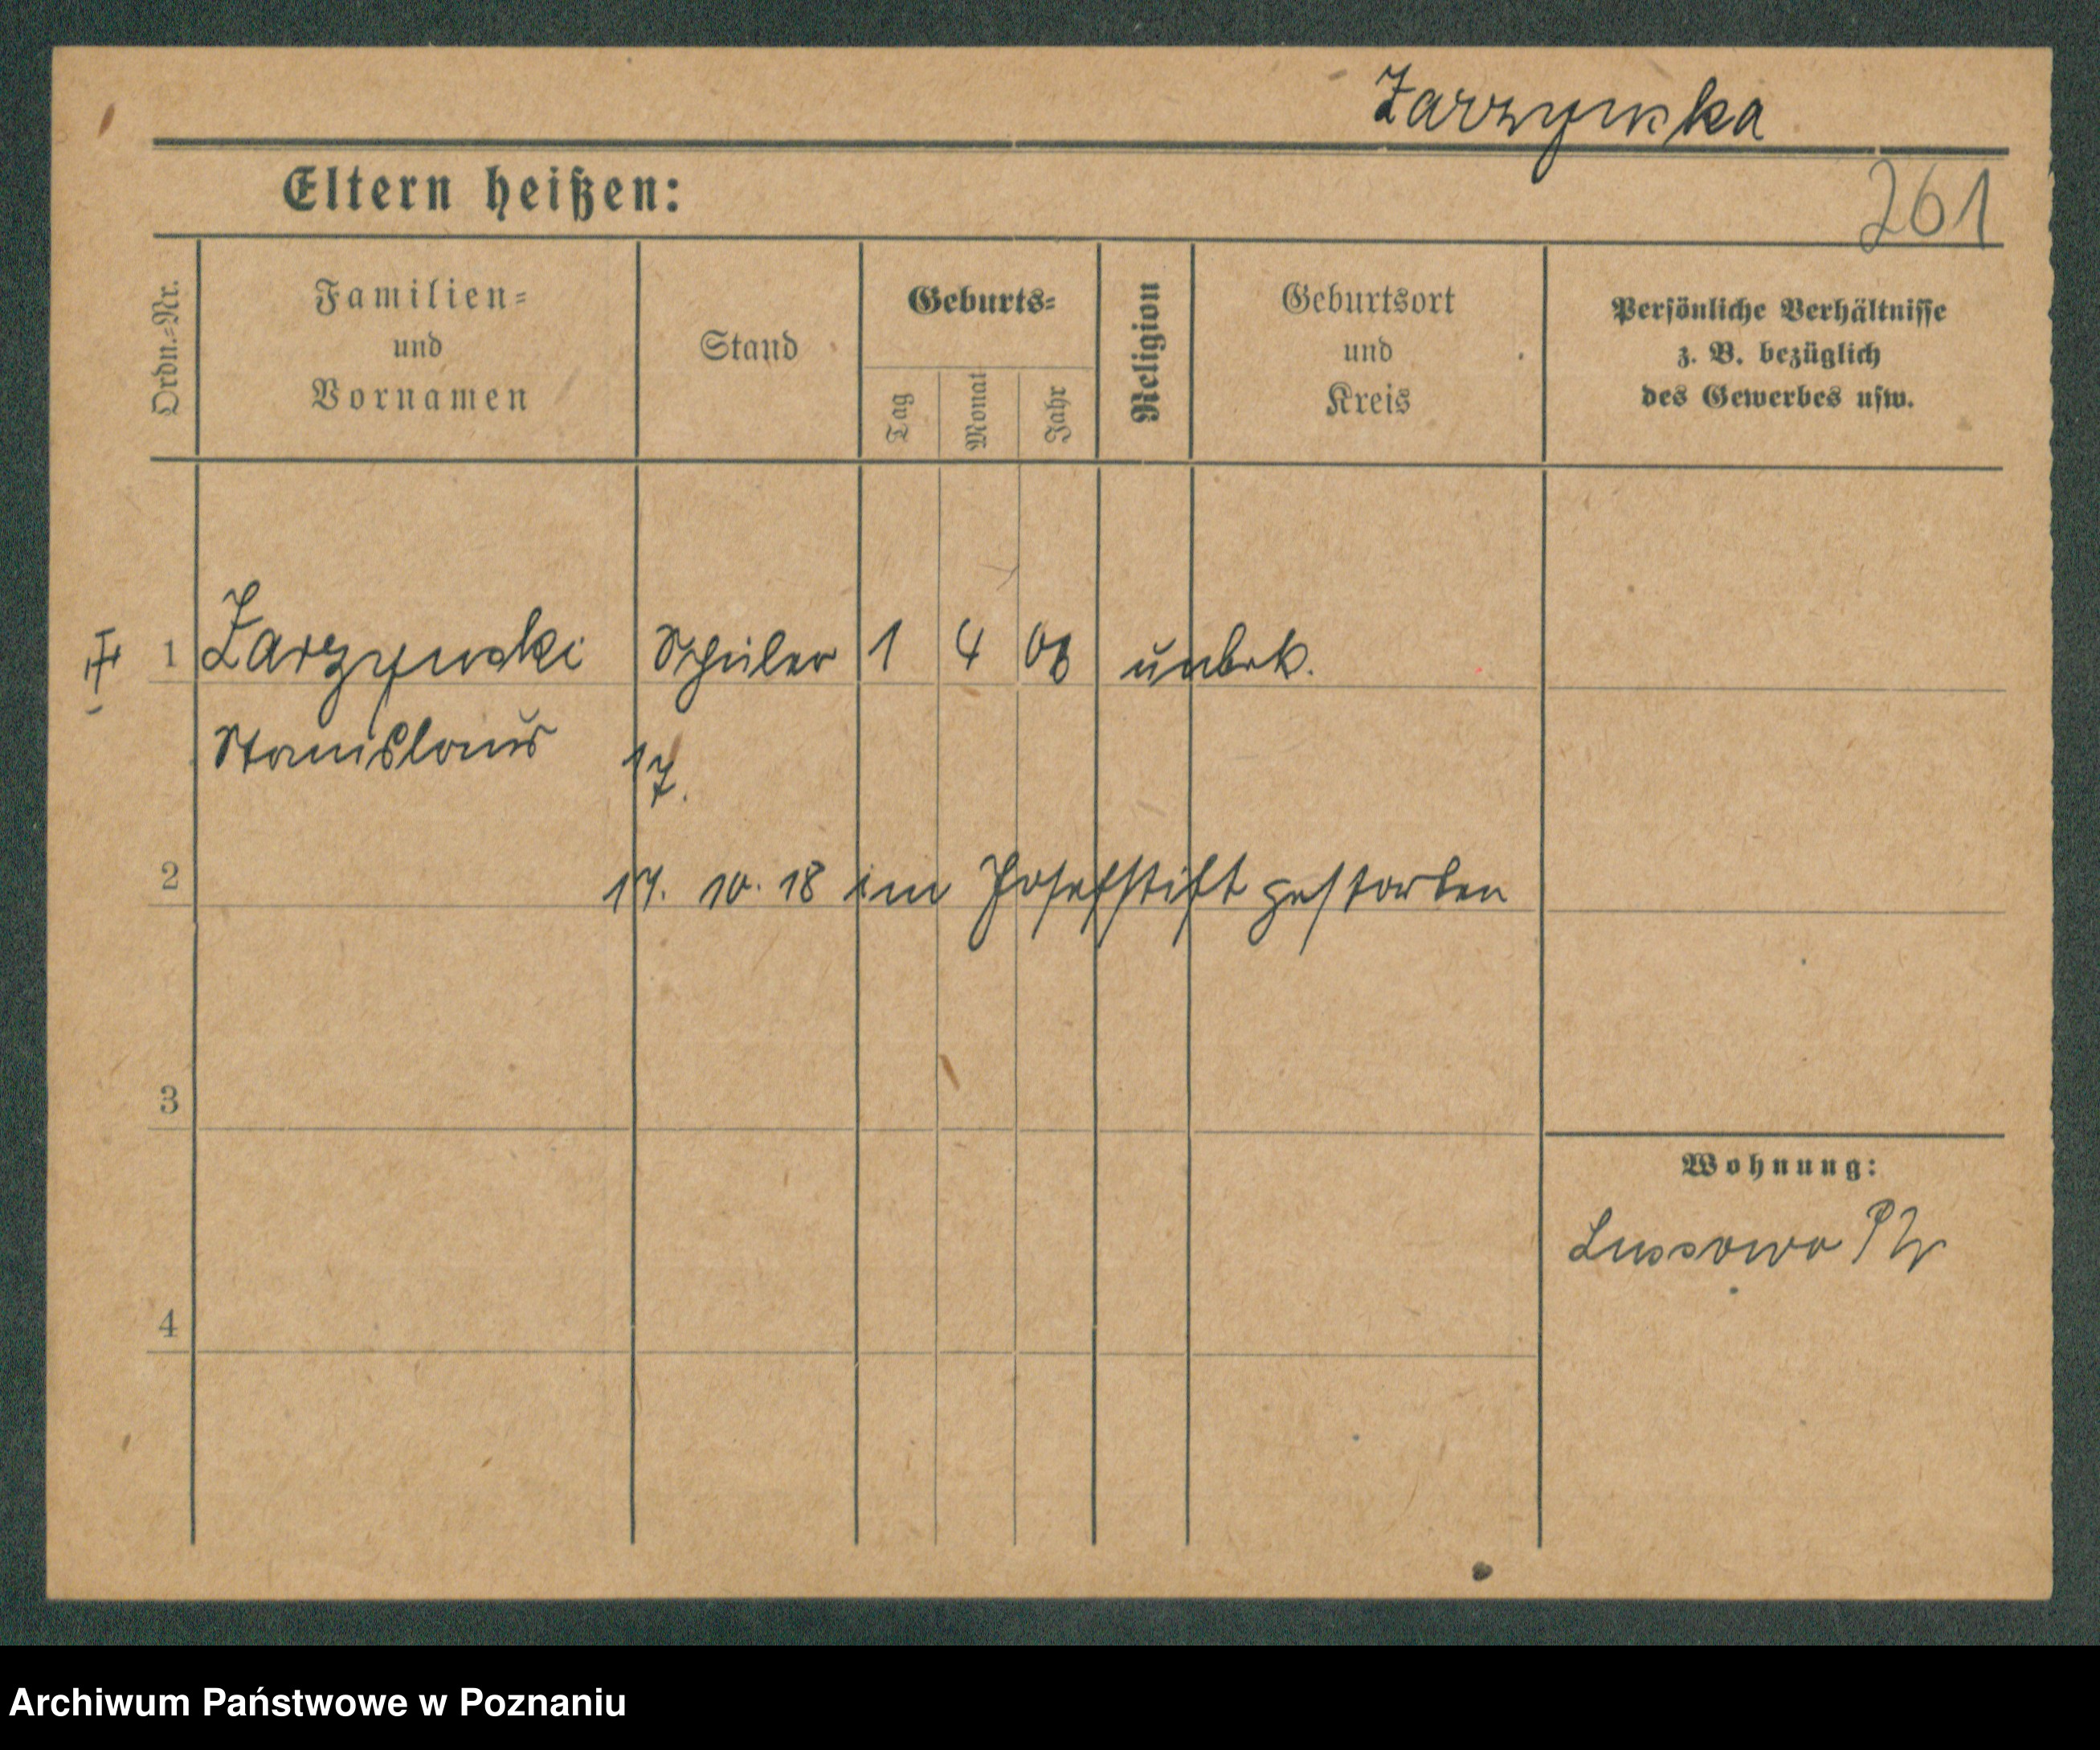 Zarzynska
Eltern heißen:
261
Ordn.-Nr.
Familien-
und
Vornamen
Stand
Geburts-
Tag
Monat
Jahr
Religion
Geburtsort
und
Kreis
Persönliche Verhältnisse
z. B. bezüglich
des Gewerbes usw.
1 Zarzynski Schüler 1 4 08 unbek.
Stanislaus
17.
2 17. 10. 18 im Josefstift gestorben
3
Wohnung:
Lussowo
4
Archiwum Państwowe w Poznaniu